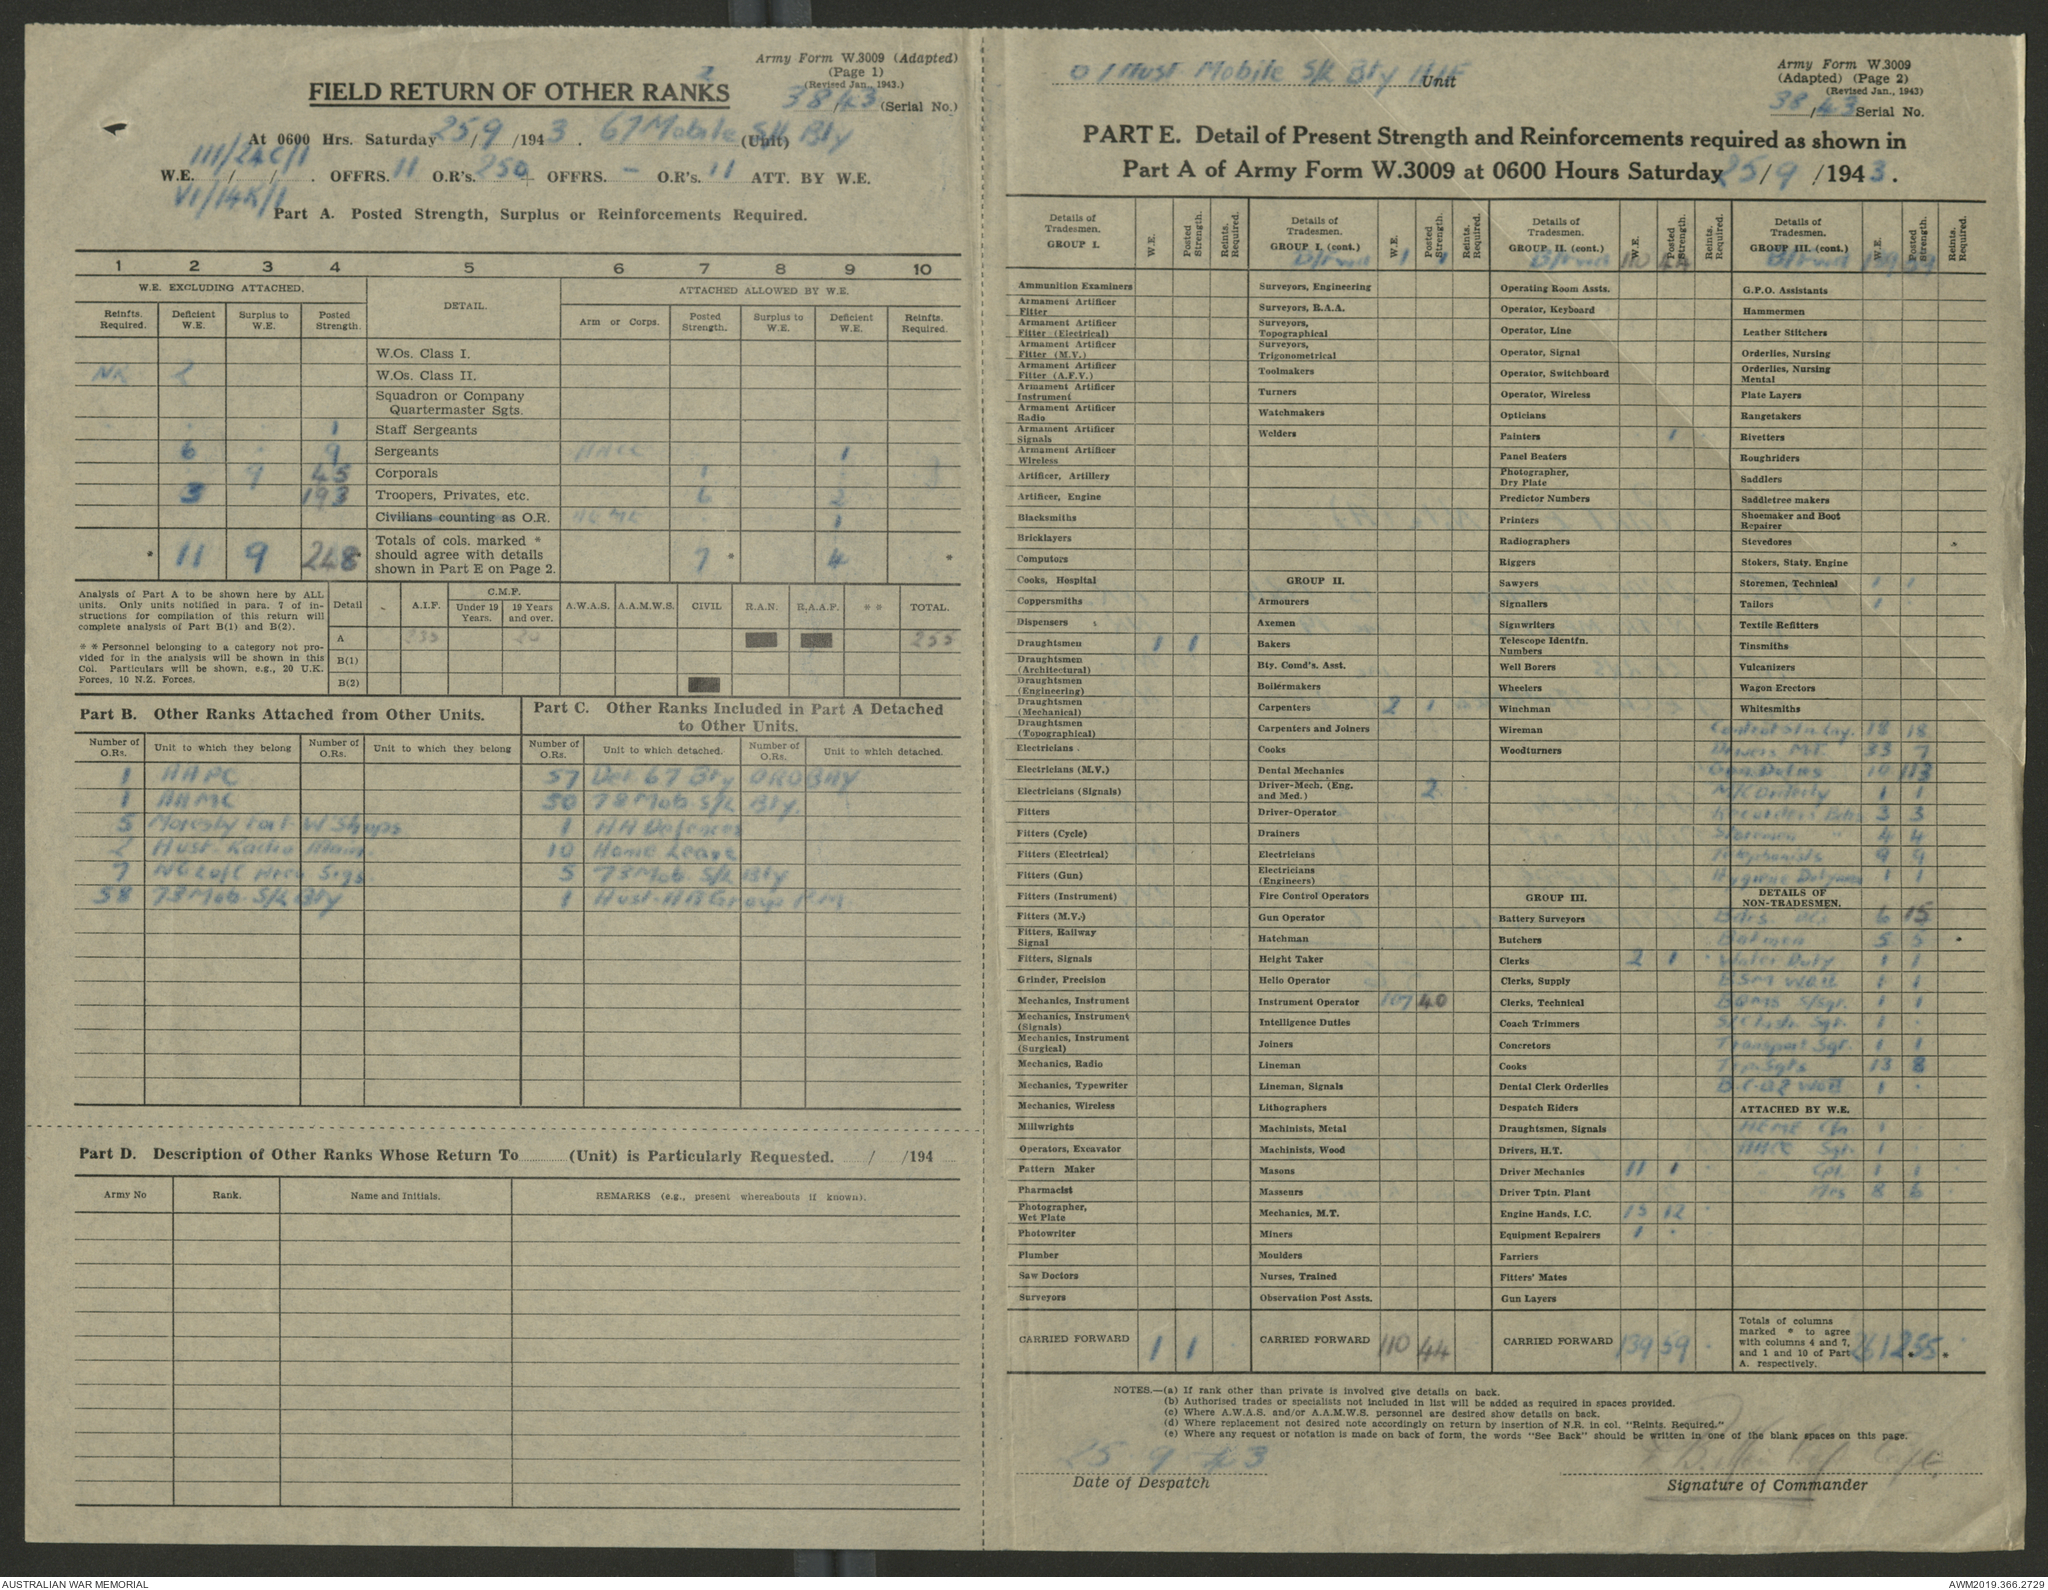 Army Form W.3009 (Adapted)
(Page 1)
(Revised Jan., 1943.)
FIELD RETURN OF OTHER RANKS
38/43 (Serial No.)
At 0600 Hrs. Saturday 25/9/1943. 67 Mobile S/L Bty (Unit)
III/24C/1
W.E. / / . OFFRS. 11 O.R's. 250 + OFFRS. – O.R's. 11 ATT. BY W.E.
VI/14K/1
Part A. Posted Strength, Surplus or Reinforcements Required.
1 2 3 4 5 6 7 8 9 10
W.E. EXCLUDING ATTACHED. DETAIL. ATTACHED ALLOWED BY W.E.
Reinfts. Required. Deficient W.E. Surplus to W.E. Posted Strength. Arm or Corps. Posted Strength. Surplus to W.E. Deficient W.E. Reinfts. Required.
W.Os. Class I.
2 W.Os. Class II.
Squadron or Company Quartermaster Sgts.
1 Staff Sergeants
6 9 Sergeants 1
9 45 Corporals 1
3 193 Troopers, Privates, etc. 6 2
Civilians counting as O.R. 1
* 11 9 248 * Totals of cols. marked * should agree with details shown in Part E on Page 2. 7 * 4 *
Analysis of Part A to be shown here by ALL units. Only units notified in para. 7 of instructions for compilation of this return will complete analysis of Part B(1) and B(2).
* * Personnel belonging to a category not provided for in the analysis will be shown in this Col. Particulars will be shown, e.g., 20 U.K. Forces, 10 N.Z. Forces.
Detail A.I.F. C.M.F. Under 19 Years. 19 Years and over. A.W.A.S. A.A.M.W.S. CIVIL R.A.N. R.A.A.F. * * TOTAL.
A 235 20 255
B(1)
B(2)
Part B. Other Ranks Attached from Other Units.
Number of O.Rs. Unit to which they belong Number of O.Rs. Unit to which they belong
1 AAPC
1 AAMC
5 Moresby Fort. W Shops
2 Aust. Radio Main.
7 NG L of C Area Sigs.
58 73 Mob. S/L Bty
Part C. Other Ranks Included in Part A Detached to Other Units.
Number of O.Rs. Unit to which detached. Number of O.Rs. Unit to which detached.
57 Det 67 Bty OROBAY
50 73 Mob. S/L Bty.
1 AA Defences
10 Home Leave
5 73 Mob. S/L Bty
1 Aust. AA Group P.M.
Part D. Description of Other Ranks Whose Return To ........ (Unit) is Particularly Requested. / /194
Army No Rank. Name and Initials. REMARKS (e.g., present whereabouts if known).
Aust Mobile S/L Bty AIF Unit
Army Form W.3009
(Adapted) (Page 2)
(Revised Jan., 1943)
38/43 Serial No.
PART E. Detail of Present Strength and Reinforcements required as shown in
Part A of Army Form W.3009 at 0600 Hours Saturday 25/9/1943.
Details of Tradesmen. GROUP I. W.E. Posted Strength. Reints. Required.
Ammunition Examiners
Armament Artificer Fitter
Armament Artificer Fitter (Electrical)
Armament Artificer Fitter (M.V.)
Armament Artificer Fitter (A.F.V.)
Armament Artificer Instrument
Armament Artificer Radio
Armament Artificer Signals
Armament Artificer Wireless
Artificer, Artillery
Artificer, Engine
Blacksmiths
Bricklayers
Computors
Cooks, Hospital
Coppersmiths
Dispensers
Draughtsmen 1 1
Draughtsmen (Architectural)
Draughtsmen (Engineering)
Draughtsmen (Mechanical)
Draughtsmen (Topographical)
Electricians
Electricians (M.V.)
Electricians (Signals)
Fitters
Fitters (Cycle)
Fitters (Electrical)
Fitters (Gun)
Fitters (Instrument)
Fitters (M.V.)
Fitters, Railway Signal
Fitters, Signals
Grinder, Precision
Mechanics, Instrument
Mechanics, Instrument (Signals)
Mechanics, Instrument (Surgical)
Mechanics, Radio
Mechanics, Typewriter
Mechanics, Wireless
Millwrights
Operators, Excavator
Pattern Maker
Pharmacist
Photographer, Wet Plate
Photowriter
Plumber
Saw Doctors
Surveyors
CARRIED FORWARD 1 1
Details of Tradesmen. GROUP I. (cont.) W.E. Posted Strength. Reints. Required.
B/fwd 1 1
Surveyors, Engineering
Surveyors, R.A.A.
Surveyors, Topographical
Surveyors, Trigonometrical
Toolmakers
Turners
Watchmakers
Welders
GROUP II.
Armourers
Axemen
Bakers
Bty. Comd's. Asst.
Boilermakers
Carpenters 2 1
Carpenters and Joiners
Cooks
Dental Mechanics
Driver-Mech. (Eng. and Med.) 2
Driver-Operator
Drainers
Electricians
Electricians (Engineers)
Fire Control Operators
Gun Operator
Hatchman
Height Taker
Helio Operator
Instrument Operator 107 40
Intelligence Duties
Joiners
Lineman
Lineman, Signals
Lithographers
Machinists, Metal
Machinists, Wood
Masons
Masseurs
Mechanics, M.T.
Miners
Moulders
Nurses, Trained
Observation Post Assts.
CARRIED FORWARD 110 44
Details of Tradesmen. GROUP II. (cont.) W.E. Posted Strength. Reints. Required.
B/fwd 110 44
Operating Room Assts.
Operator, Keyboard
Operator, Line
Operator, Signal
Operator, Switchboard
Operator, Wireless
Opticians
Painters 1
Panel Beaters
Photographer, Dry Plate
Predictor Numbers
Printers
Radiographers
Riggers
Sawyers
Signallers
Signwriters
Telescope Identfn. Numbers
Well Borers
Wheelers
Winchman
Wireman
Woodturners
GROUP III.
Battery Surveyors
Butchers
Clerks 2 1
Clerks, Supply
Clerks, Technical
Coach Trimmers
Concretors
Cooks
Dental Clerk Orderlies
Despatch Riders
Draughtsmen, Signals
Drivers, H.T.
Driver Mechanics 11 1
Driver Tptn. Plant
Engine Hands, I.C. 15 12
Equipment Repairers 1
Farriers
Fitters' Mates
Gun Layers
CARRIED FORWARD 139 59
Details of Tradesmen. GROUP III. (cont.) W.E. Posted Strength. Reints. Required.
B/fwd 139 59
G.P.O. Assistants
Hammermen
Leather Stitchers
Orderlies, Nursing
Orderlies, Nursing Mental
Plate Layers
Rangetakers
Rivetters
Roughriders
Saddlers
Saddletree makers
Shoemaker and Boot Repairer
Stevedores
Stokers, Staty. Engine
Storemen, Technical 1 1
Tailors 1
Textile Refitters
Tinsmiths
Vulcanizers
Wagon Erectors
Whitesmiths
Control Stn 18 18
Drivers M.T. 33 7
Gen. Duties 10 113
M/C Orderly 1 1
3 3
Storemen " 4 4
Telephonists 9 9
Hygiene Dutymen 1 1
DETAILS OF NON-TRADESMEN.
6 15
Batmen 5 5
Water Duty 1 1
BSM WOII 1 1
BQMS S/Sgt. 1 1
Sgt. 1
Transport Sgt. 1 1
Trp. Sgts 13 8
1
ATTACHED BY W.E.
AEME 1
AACC Sgt. 1
Cpl. 1 1
8 6
Totals of columns marked * to agree with columns 4 and 7, and 1 and 10 of Part A. respectively. 261 255
NOTES.—(a) If rank other than private is involved give details on back.
(b) Authorised trades or specialists not included in list will be added as required in spaces provided.
(c) Where A.W.A.S. and/or A.A.M.W.S. personnel are desired show details on back.
(d) Where replacement not desired note accordingly on return by insertion of N.R. in col. "Reints. Required."
(e) Where any request or notation is made on back of form, the words "See Back" should be written in one of the blank spaces on this page.
25 9 43
Date of Despatch
Signature of Commander
AUSTRALIAN WAR MEMORIAL
AWM2019.366.2729